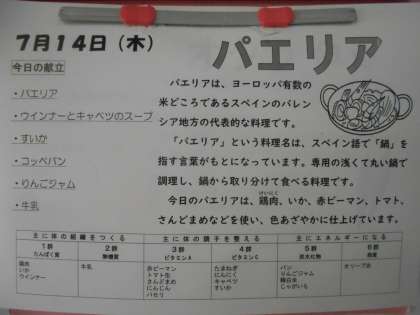 7月14日（木）
パエリア
今日の献立
・パエリア
・ウインナーとキャベツのスープ
・すいか
・コッペパン
・りんごジャム
・牛乳
パエリアは、ヨーロッパ有数の
米どころであるスペインのバレン
シア地方の代表的な料理です。
「パエリア」という料理名は、スペイン語で「鍋」を
指す言葉がもとになっています。専用の浅くて丸い鍋で
調理し、鍋から取り分けて食べる料理です。
けいにく
今日のパエリアは、鶏肉、いか、赤ピーマン、トマト、
さんどまめなどを使い、色あざやかに仕上げています。
主に体の組織をつくる
主に体の調子を整える
主にエネルギーになる
1群 2群 3群 4群 5群 6群
たんぱく質 無機質 ビタミンA ビタミンC 炭水化物 脂質
鶏肉 牛乳 赤ピーマン たまねぎ パン オリーブ油
いか トマト缶 にんにく りんごジャム
ウインナー さんどまめ キャベツ 精白米
にんじん すいか じゃがいも
パセリ